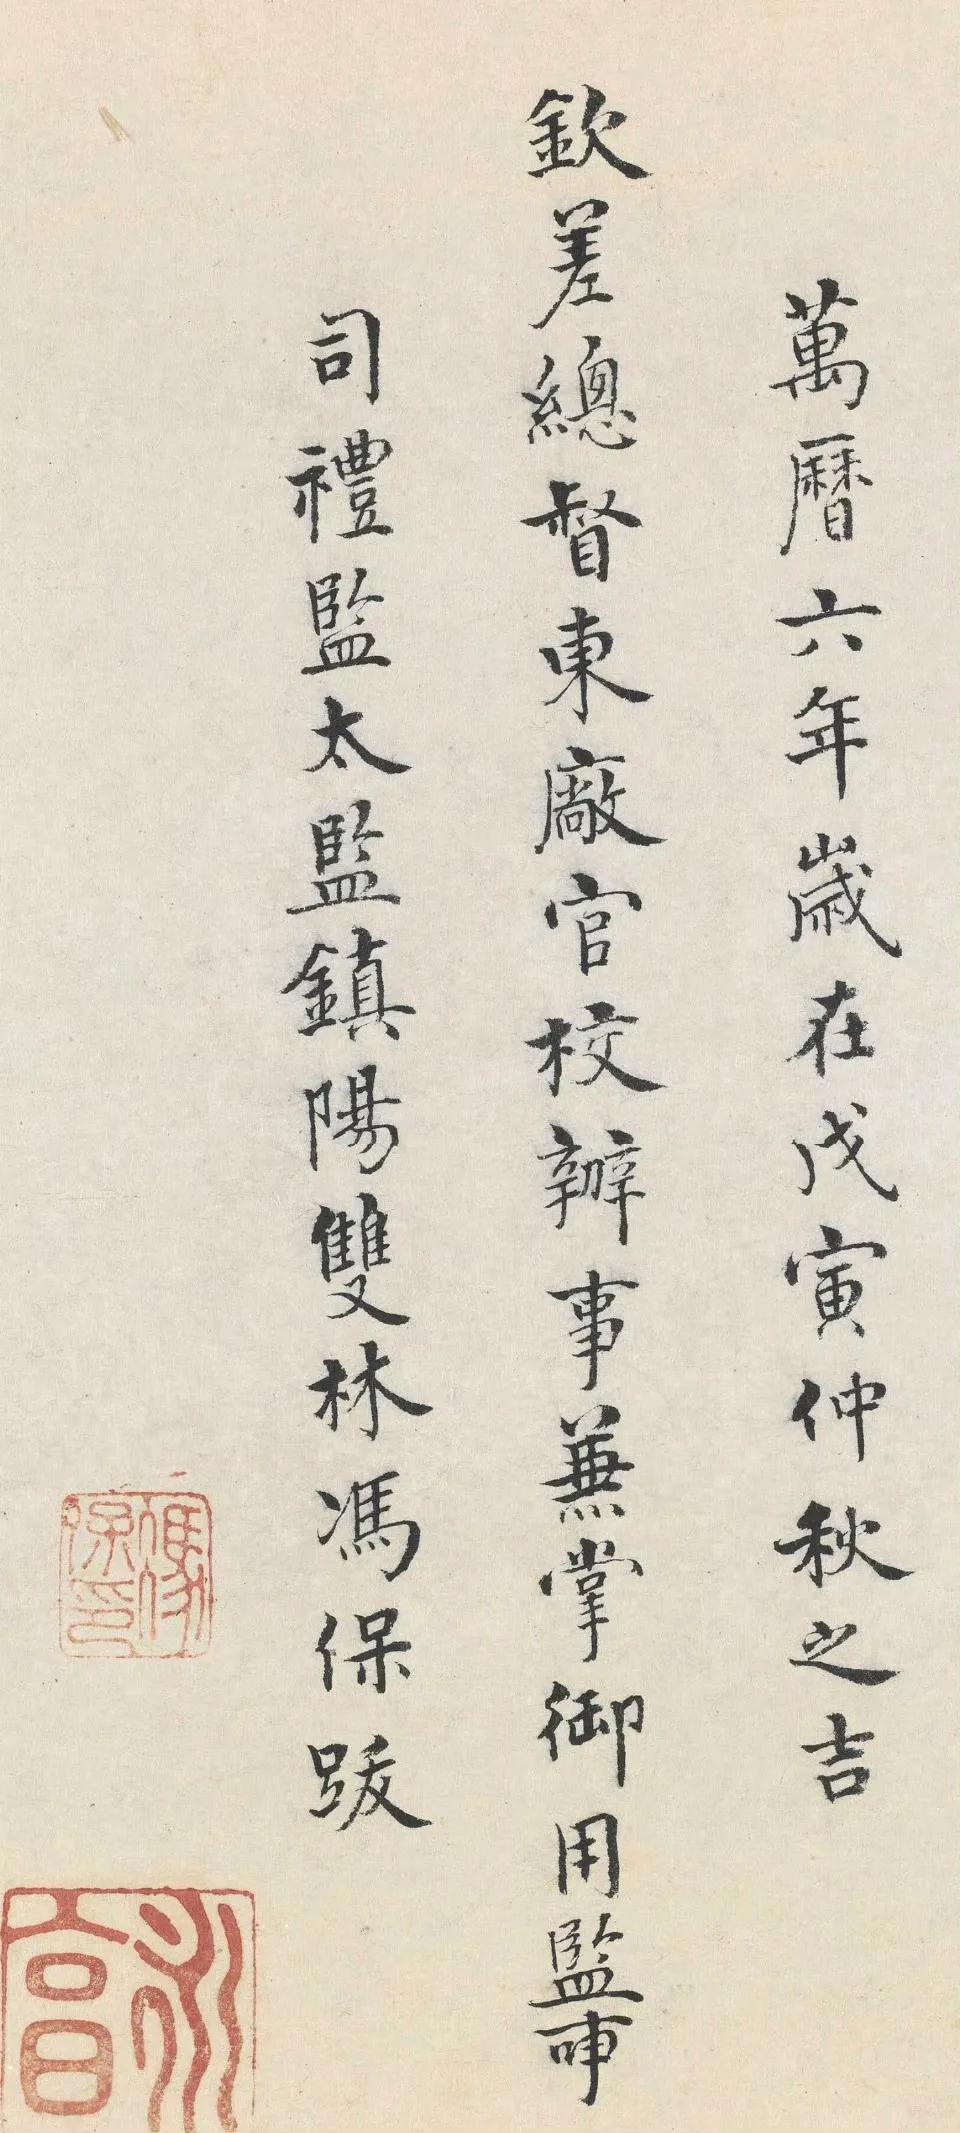 萬曆六年歲在戊寅仲秋之吉
欽差總督東廠官校辦事兼掌御用監事
司禮監太監鎮陽雙林馮保跋
馮保印